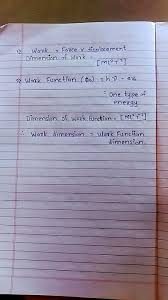 1) Work = Force x displacement
Dimension of Work = [ML²T⁻²]
2) Work Function (Φ₀) = h ν - eV₀
: one type of
energy.
Dimension of Work Function = [ML²T⁻²]
∴ Work dimension = Work Function
dimension.